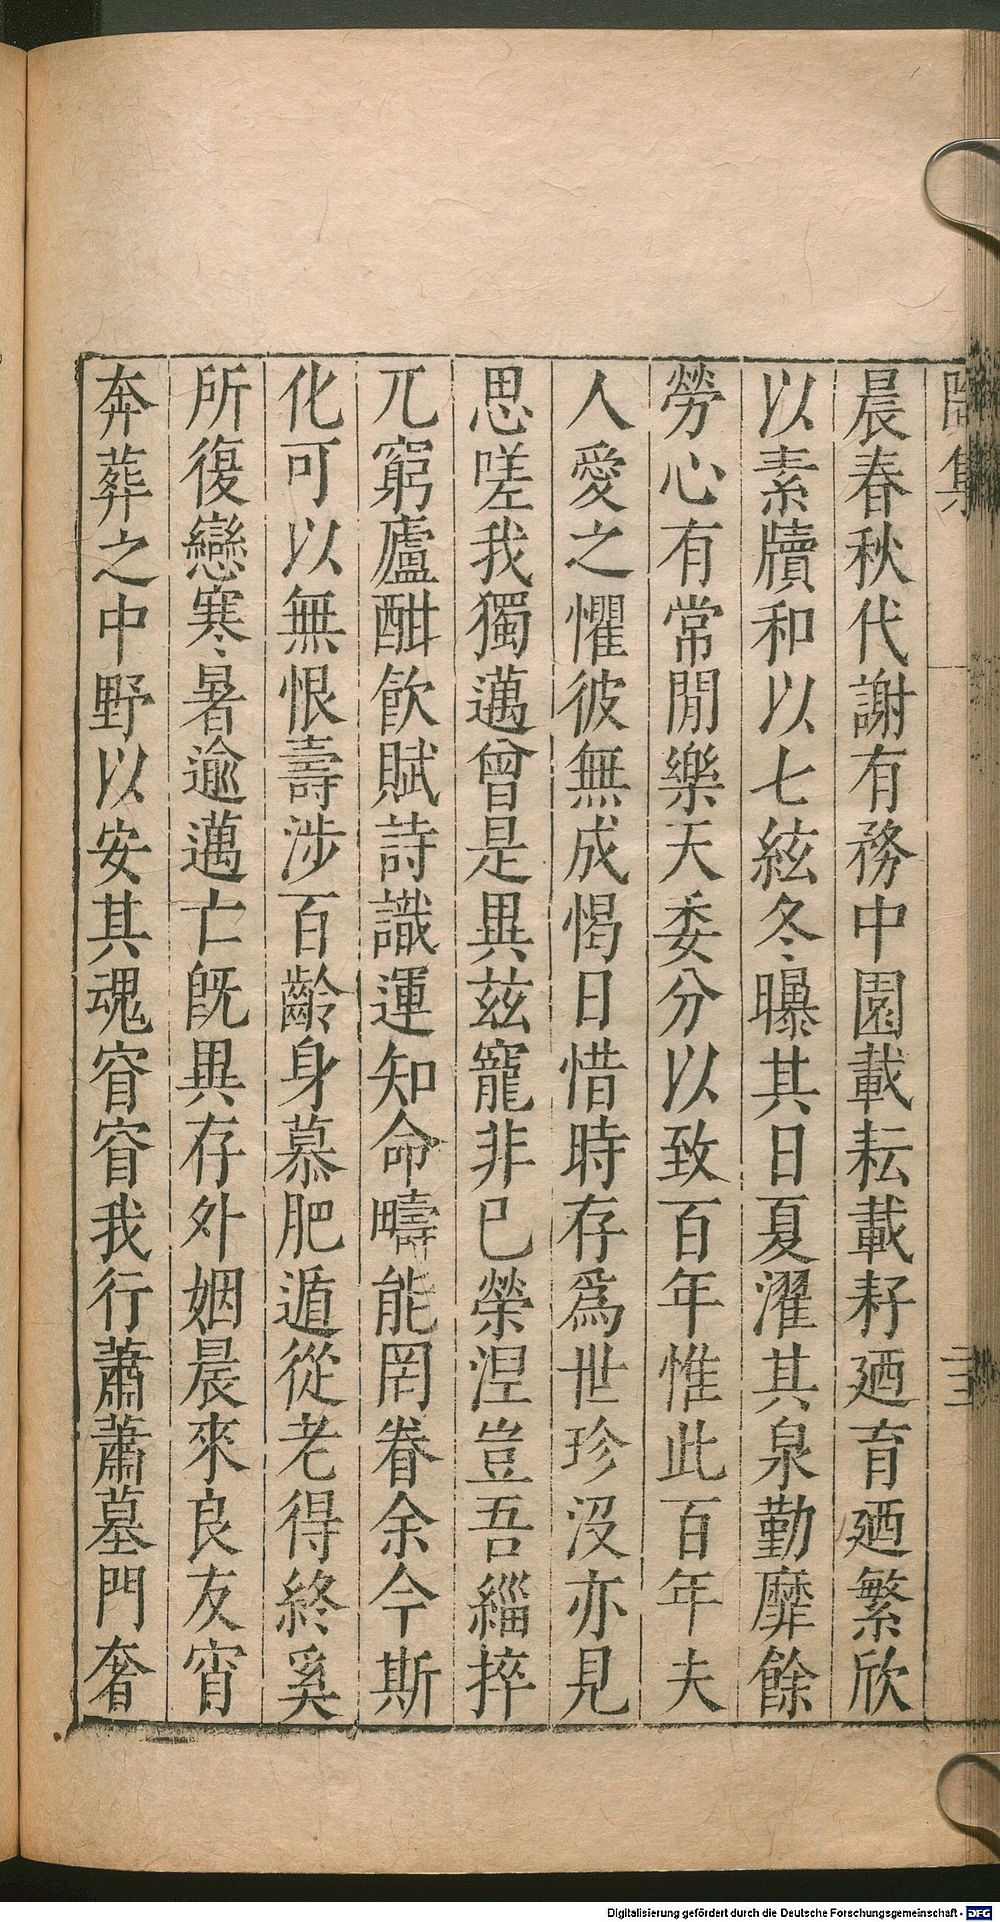 晨春秋代謝有務中園載耘載耔廼育廼繁欣
以素牘和以七絃冬曝其日夏濯其泉勤靡餘
勞心有常閒樂天委分以致百年惟此百年夫
人愛之懼彼無成愒日惜時存爲世珍沒亦見
思嗟我獨邁曾是異茲寵非已榮涅豈吾緇捽
兀窮廬酣飲賦詩識運知命疇能罔眷余今斯
化可以無恨壽涉百齡身慕肥遁從老得終奚
所復戀寒暑逾邁亡既異存外姻晨來良友宵
奔葬之中野以安其魂窅窅我行蕭蕭墓門奢
Digitalisierung gefördert durch die Deutsche Forschungsgemeinschaft - DFG